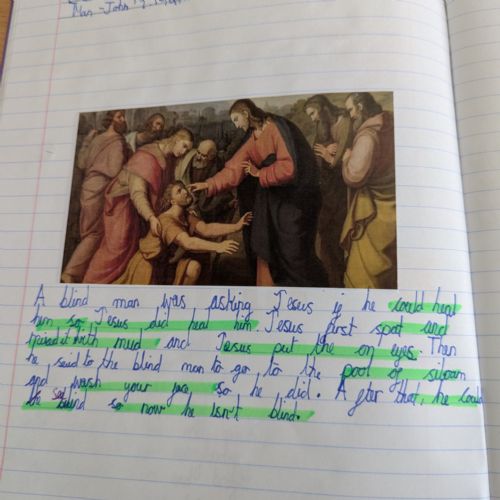 Man - John 9
A blind man was asking Jesus if he could heal
him so Jesus did heal him. Jesus first spat and
mixed it with mud and Jesus put the on eyes. Then
he said to the blind man to go to the pool of siloam
and wash your face so he did. After that, he could
see so now he isn't blind.